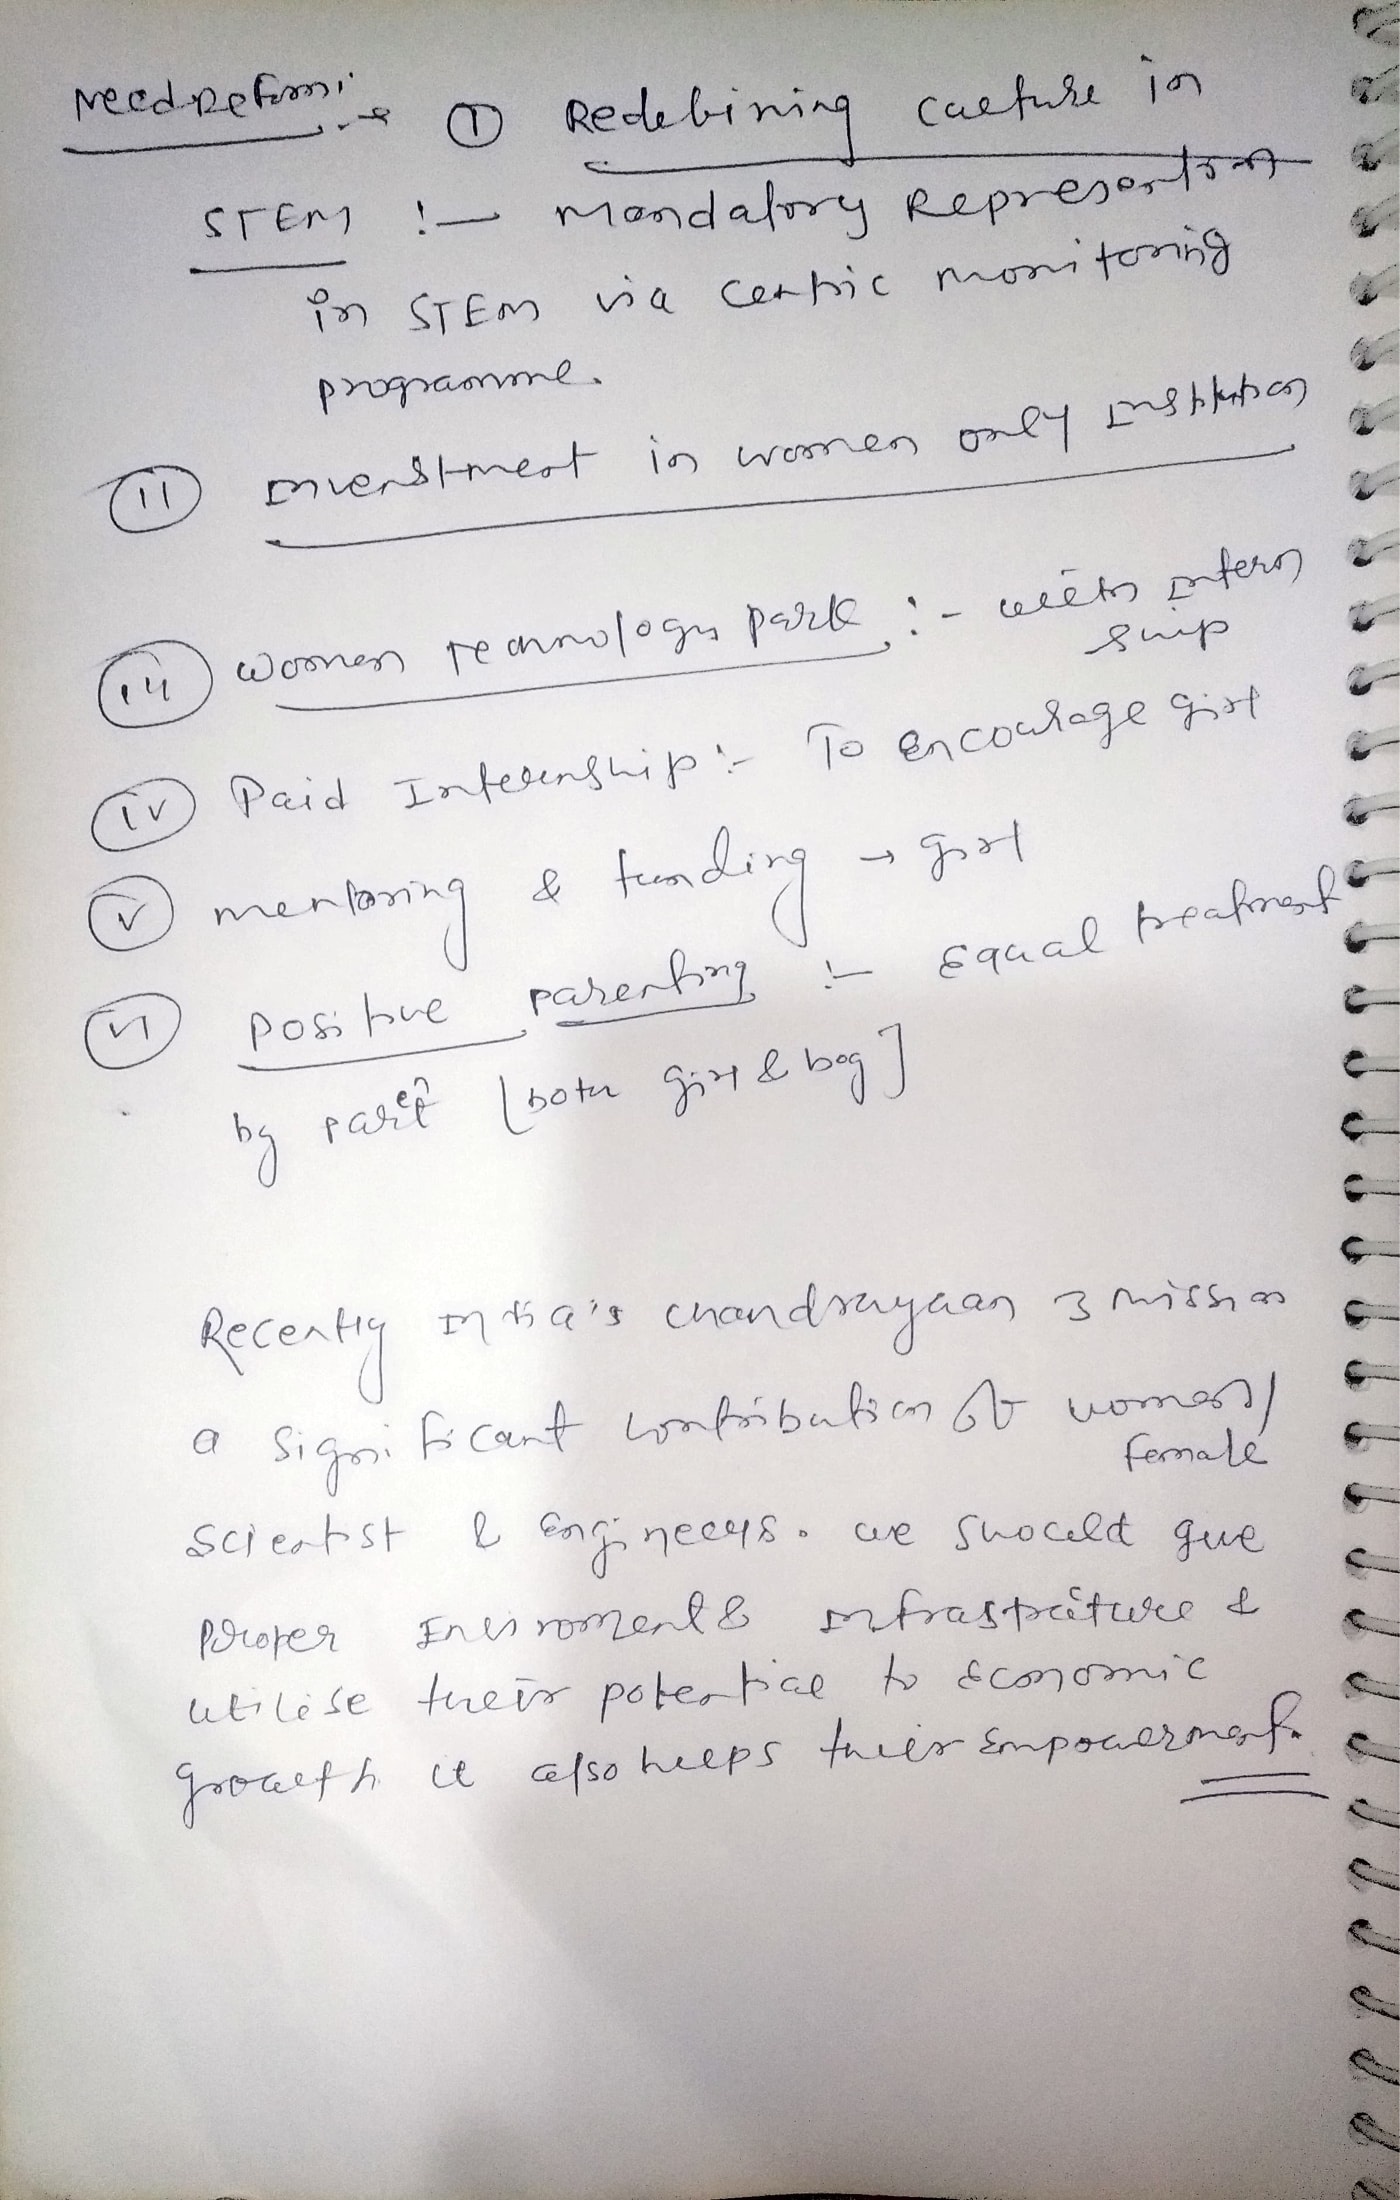 Need Reform :- ① Redefining culture in
STEM :- Mandatory Representation
in STEM via centric monitoring
programme.
(ii) Investment in women only Institution
(iii) women Technology park :- with intern
ship
(iv) Paid Internship :- To encourage girl
(v) mentoring & funding → girl
(vi) positive parenting :- Equal treatment
by parent [both girl & boy]
Recently India's chandrayaan 3 mission
a significant contribution of women/
female
scientist & Engineers. we should give
proper Enviroment & infrastructure &
utilise their potential to Economic
growth it also helps their Empowerment.